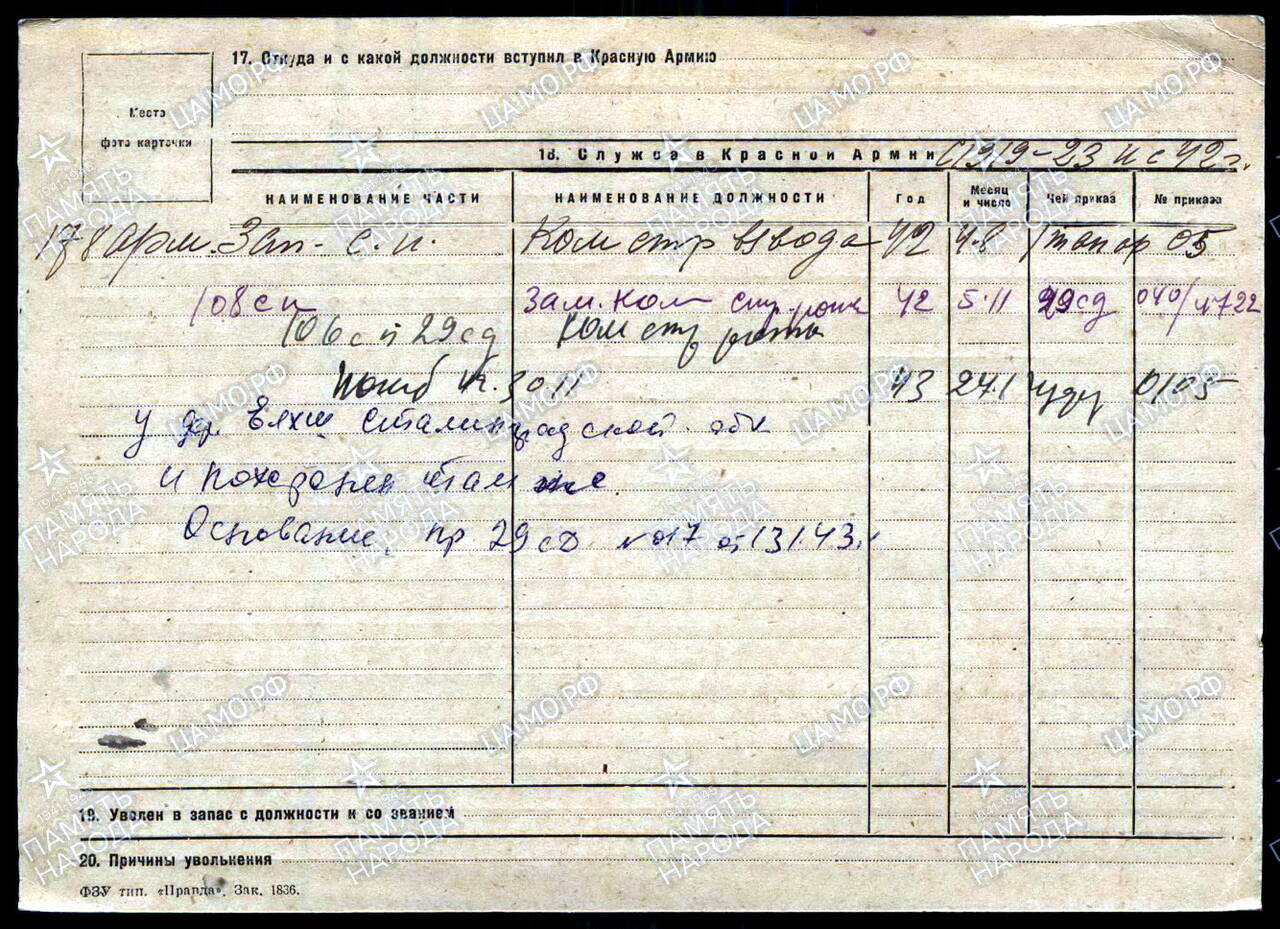 17. Откуда и с какой должности вступил в Красную Армию
Место
фото карточки
18. Служба в Красной Армии с 1919-23 и с 42 г.
НАИМЕНОВАНИЕ ЧАСТИ НАИМЕНОВАНИЕ ДОЛЖНОСТИ Год Месяц и число Чей приказ № приказа
178 арм. Зап. с.п. Ком стр взвода 42 4.8 05
108 сп Зам. Ком стр. роты 42 5.11 29 сд 040/
106 сп 29 сд Ком стр роты
Погиб 30 11 43 24.1
у дер. Сталинградской обл
и похоронен там же
Основание. пр 29 сд № 017 от 13 1.43 г
19. Уволен в запас с должности и со званием
20. Причины увольнения
ФЗУ тип. «Правда». Зак. 1836.
ЦАМО.РФ
1941-1945
ПАМЯТЬ
НАРОДА